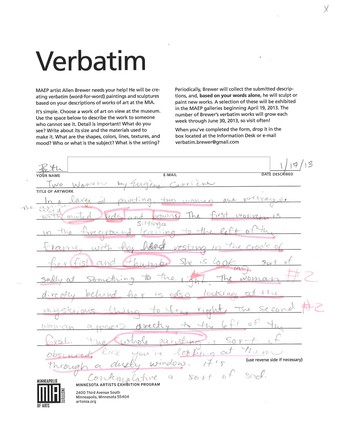 Verbatim
MAEP artist Allen Brewer needs your help! He will be cre-
ating verbatim (word-for-word) paintings and sculptures
based on your descriptions of works of art at the MIA.
It's simple. Choose a work of art on view at the museum.
Use the space below to describe the work to someone
who cannot see it. Detail is important! What do you
see? Write about its size and the materials used to
make it. What are the shapes, colors, lines, textures, and
mood? Who or what is the subject? What is the setting?
Periodically, Brewer will collect the submitted descrip-
tions, and, based on your words alone, he will sculpt or
paint new works. A selection of these will be exhibited
in the MAEP galleries beginning April 19, 2013. The
number of Brewer's verbatim works will grow each
week through June 30, 2013, so visit often!
When you've completed the form, drop it in the
box located at the Information Desk or e-mail
verbatim.brewer@gmail.com
Beth 1/17/13
YOUR NAME E-MAIL DATE DESCRIBED
Two Women by Eugène Carrière
TITLE OF ARTWORK
In a painting two women are
soft muted and browns The first woman is
sitting
in the foreground to the left of the
frame, with her head resting in the crook of
her She is look out
sadly at something to the right. The woman #2
directly behind her is also looking at the
mysterious thing to the right. The second #2
woman appears directly to the left of the
first. The whole painting is sort of
obscured, like you're looking at them
through a dusty window. It's
(use reverse side if necessary)
contemplative & sort of sad
MINNEAPOLIS
INSTITUTE
OF ARTS
MINNESOTA ARTISTS EXHIBITION PROGRAM
2400 Third Avenue South
Minneapolis, Minnesota 55404
artsmia.org